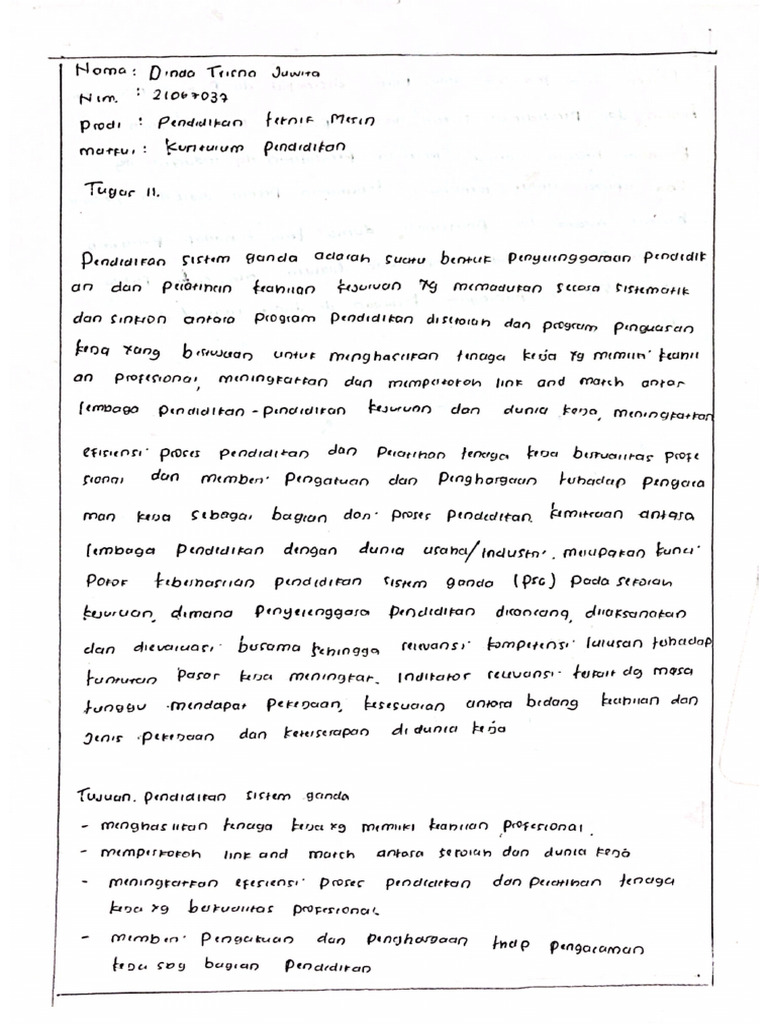 Nama : Dinda Trisna Juwita
Nim. : 21067037
Prodi : Pendidikan teknik Mesin
matkul : Kurikulum Pendidikan
Tugas 11.
Pendidikan sistem ganda adalah suatu bentuk Penyelenggaraan Pendidik
an dan Pelatihan keahlian kejuruan yg memadukan secara sistematik
dan sinkron antara program Pendidikan disekolah dan program Penguasan
kerja yang bersifat untuk menghasilkan tenaga kerja yg memiliki keahli
an Profesional, meningkatkan dan memperkokoh link and match antar
lembaga Pendidikan - pendidikan kejuruan dan dunia kerja, meningkatkan
efisiensi proses Pendidikan dan Pelatihan tenaga kerja berkualitas profe
sional dan memberi Pengakuan dan Penghargaan terhadap Pengala
man kerja sebagai bagian dari proses pendidikan. kemitraan antara
lembaga Pendidikan dengan dunia usaha/industri. merupakan kunci
Pokok keberhasilan pendidikan sistem ganda (psg) Pada sekolah
kejuruan, dimana Penyelenggara Pendidikan dirancang, dilaksanakan
dan dievaluasi bersama sehingga relevansi kompetensi lulusan terhadap
tuntutan Pasar kerja meningkat. Indikator relevansi terkait dg masa
tunggu mendapat Pekerjaan, kesesuaian antara bidang keahlian dan
jenis pekerjaan dan keterserapan di dunia kerja
Tujuan. pendidikan sistem ganda
- menghasilkan tenaga kerja yg memiliki keahlian profesional.
- memperkokoh link and match antara sekolah dan dunia kerja
- meningkatkan efesiensi proses pendidikan dan pelatihan tenaga
kerja yg berkualitas profesional.
- memberi Pengakuan dan penghargaan thdp pengalaman
kerja sbg bagian pendidikan